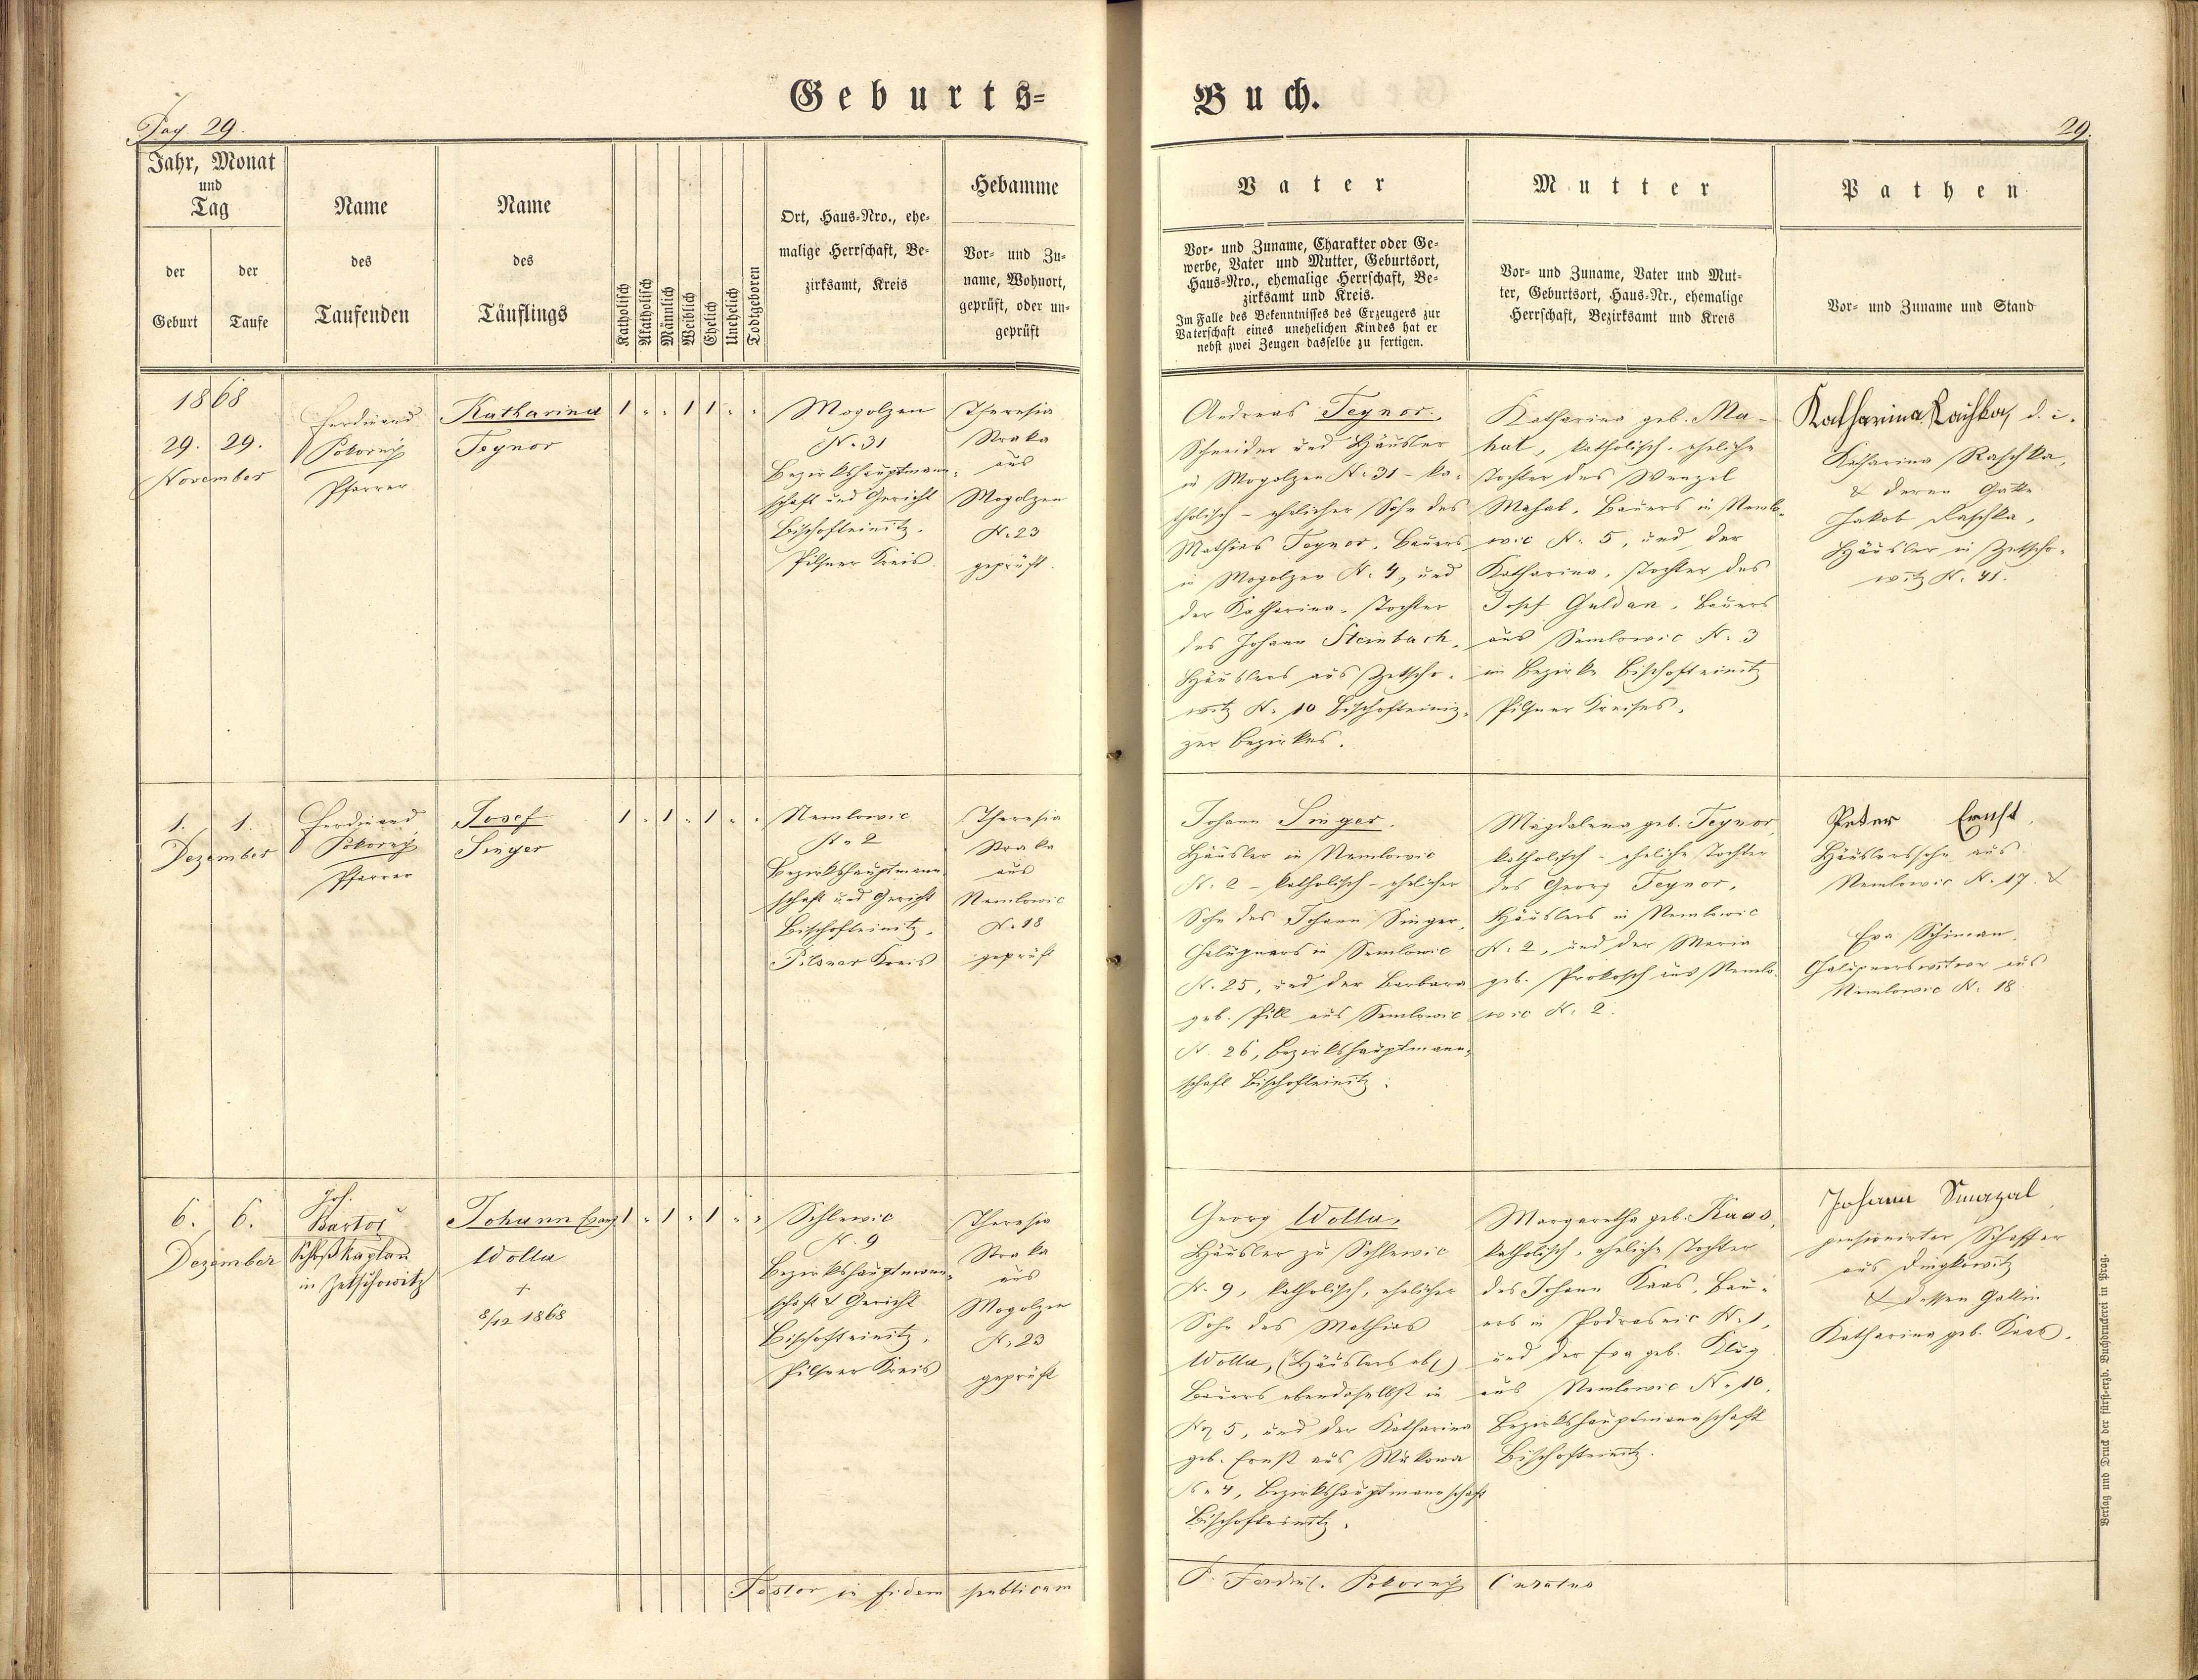 Geburts=
Pag 29.
Jahr, Monat
und
Tag
der
Geburt
der
Taufe
Name
des
Taufenden
Name
des
Täuflings
Katholisch
Akatholisch
Männlich
Weiblich
Ehelich
Unehelich
Todtgeboren
Ort, Haus=Nro., ehe=
malige Herrschaft, Be=
zirksamt, Kreis
Hebamme
Vor= und Zu=
name, Wohnort,
geprüft, oder un=
geprüft
1868
29. 29.
November
Ferdinand
Pokorný
Pfarrer
Katharina
Teynor
1 " " 1 1 " "
Mogolzen
N. 31
Bezirkshauptmann=
schaft und Gericht
Bischofteinitz.
Pilsner Kreis.
Theresia
Straka
aus
Mogolzen
N. 23
geprüft.
1. 1.
Dezember
Ferdinand
Pokorný
Pfarrer
Josef
Singer
1 " 1 " 1 " "
Nemlowic
N. 2
Bezirkshauptmann=
schaft und Gericht
Bischofteinitz.
Pilsner Kreis
Theresia
Straka
aus
Nemlowic
N. 18
geprüft
6. 6.
Dezember
Jos.
Bartoš
Schloßkaplan
in Zetschowitz
Johann Evang
Wolla
+
8/12 1868
1 " 1 " 1 " "
Schlewic
N. 9
Bezirkshauptmann=
schaft & Gericht
Bischofteinitz.
Pilsner Kreis
Theresia
Straka
aus
Mogolzen
N. 23
geprüft
Testor in fidem publicam
Buch.
29.
Vater
Vor= und Zuname, Charakter oder Ge=
werbe, Vater und Mutter, Geburtsort,
Haus=Nro., ehemalige Herrschaft, Be=
zirksamt und Kreis.
Im Falle des Bekenntnisses des Erzeugers zur
Vaterschaft eines unehelichen Kindes hat er
nebst zwei Zeugen dasselbe zu fertigen.
Mutter
Vor= und Zuname, Vater und Mut=
ter, Geburtsort, Haus=Nr., ehemalige
Herrschaft, Bezirksamt und Kreis
Pathen
Vor= und Zuname und Stand
Andreas Teynor.
Schneider und Häusler
in Mogolzen N. 31 – ka=
tholisch – ehelicher Sohn des
Mathias Teynor, Bauers
in Mogolzen N. 4, und
der Katharina, Tochter
des Johann Steinbach,
Häuslers aus Zetscho=
witz N. 10 Bischofteiniz=
zer Bezirkes.
Katharina geb. Ma=
hal, katholisch, eheliche
Tochter des Wenzel
Mahal, Bauers in Nemlo=
wic N. 5, und der
Katharina, Tochter des
Josef Guldan, Bauers
aus Semlowic N. 3
im Bezirke Bischofteinitz
Pilsner Kreises.
Katharina Raschka, d. i.
Katharina Raschka,
& deren Gatte
Jakob Raschka,
Häusler in Zetscho=
witz N. 41.
Johann Singer.
Häusler in Nemlowic
N. 2 – katholisch – ehelicher
Sohn des Johann Singer,
Chalupners in Semlowic
N. 25, und der Barbara
geb. Pill aus Semlowic
N. 26, Bezirkshauptmann=
schaft Bischofteinitz.
Magdalena geb. Teynor,
katholisch – eheliche Tochter
des Georg Teynor,
Häuslers in Nemlowic
N. 2, und der Maria
geb. Prokosch aus Nemlo=
wic N. 2.
Peter Ernst,
Häuslerssohn aus
Nemlowic N. 17. &
Eva Schiman,
Chalupnerswitwe aus
Nemlowic N. 18
Georg Wolla,
Häusler zu Schlewic
N. 9, katholisch, ehelicher
Sohn des Mathias
Wolla, (Häuslers
Bauers ebendaselbst in
N. 5, und der Katharina
geb. Ernst aus Mukowa
N. 4, Bezirkshauptmannschaft
Bischofteinitz.
Margaretha geb. Kaas,
katholisch, eheliche Tochter
des Johann Kaas, Bau=
ers in Podrasnic N. 1,
und der Eva geb. Klug
aus Nemlowic N. 10,
Bezirkshauptmannschaft
Bischofteinitz.
Johann Smazal
pensionirter Schaffer
aus
& dessen Gattin
Katharina geb. Kaas.
P. Ferdin. Pokorný Curatus
Verlag und Druck der fürst=erzb. Buchdruckerei in Prag.